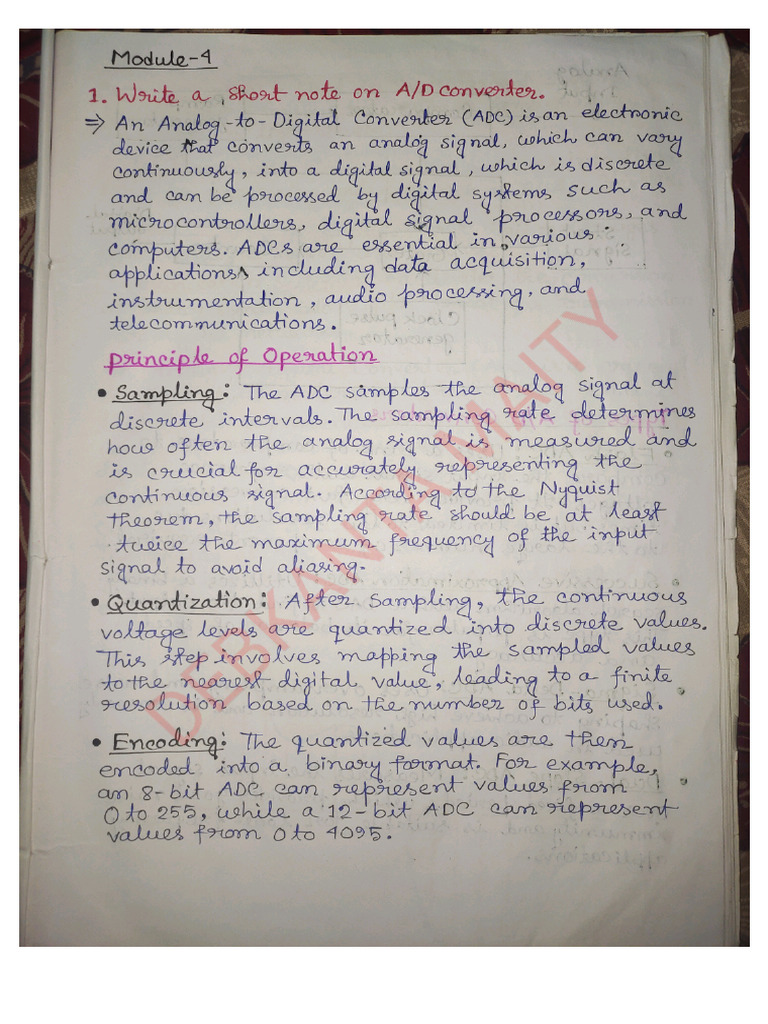 Module-4
1. Write a short note on A/D converter.
⇒ An Analog-to-Digital Converter (ADC) is an electronic
device that converts an analog signal, which can vary
continuously, into a digital signal, which is discrete
and can be processed by digital systems such as
microcontrollers, digital signal processors, and
computers. ADCs are essential in various
applications, including data acquisition,
instrumentation, audio processing, and
telecommunications.
Principle of Operation
• Sampling: The ADC samples the analog signal at
discrete intervals. The sampling rate determines
how often the analog signal is measured and
is crucial for accurately representing the
continuous signal. According to the Nyquist
theorem, the sampling rate should be at least
tweice the maximum frequency of the input
signal to avoid aliasing.
• Quantization: After Sampling, the continuous
voltage levels are quantized into discrete values.
This step involves mapping the sampled values
to the nearest digital value, leading to a finite
resolution based on the number of bits used.
• Encoding: The quantized values are then
encoded into a binary format. For example,
an 8-bit ADC can represent values from
0 to 255, while a 12-bit ADC can represent
values from 0 to 4095.
DEBKANTA MAITY